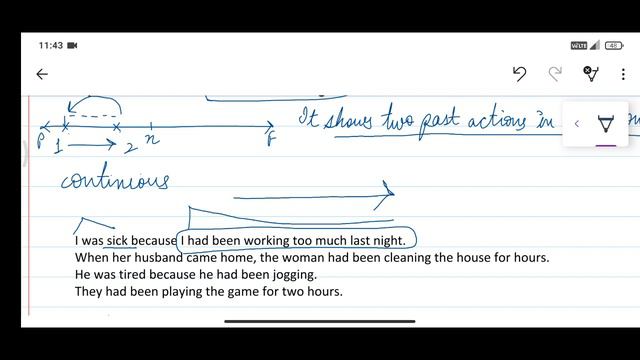 11:43
VoLTE 48
It shows two past actions in
P 1 2 n F
continious
I was sick because I had been working too much last night.
When her husband came home, the woman had been cleaning the house for hours.
He was tired because he had been jogging.
They had been playing the game for two hours.